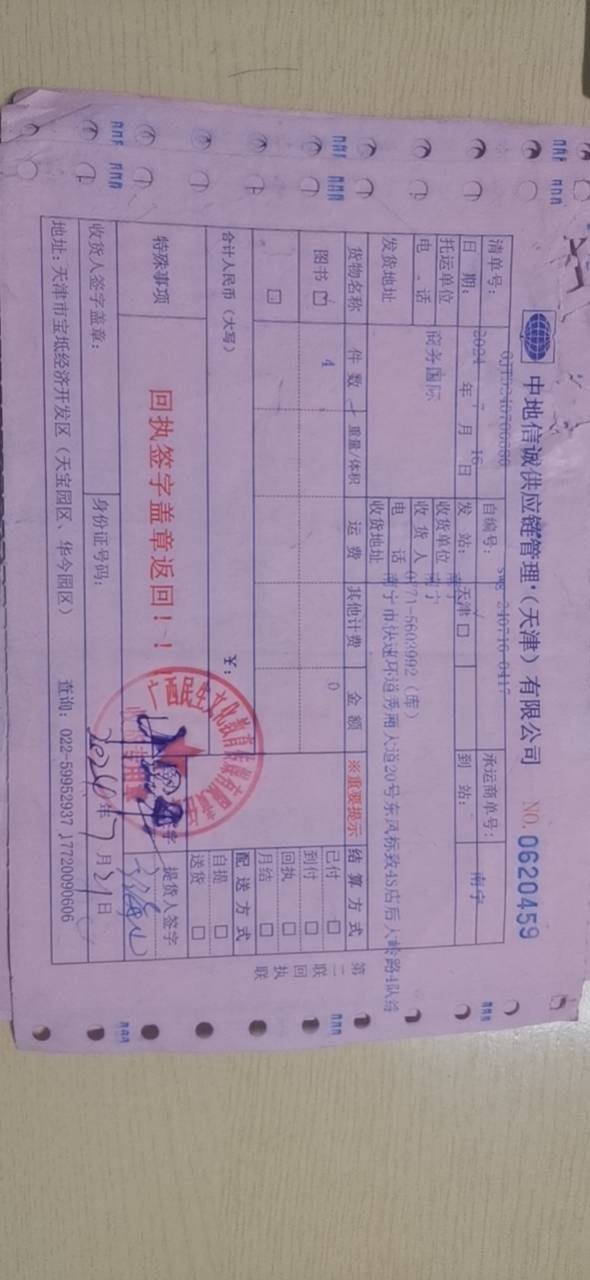 中地信诚供应链管理(天津)有限公司 NO. 0620459
清单号: 自编号: 承运商单号:
日 期: 2024 年 7 月 16 日 发 站: 天津 到 站: 南宁
托运单位 商务国际 收货单位 南宁
电 话 收 货 人 南宁
发货地址 电 话 0771-5603992(库)
收货地址 南宁市快速环道秀厢大道20号东风标致4S店后大岭路4队
货物名称 件 数 重量/体积 运 费 其他计费 金 额 ※重要提示 结 算 方 式
图书 4 0 已付
到付
回执
月结
合计人民币(大写) ¥: 配 送 方 式
自提
送货
特殊事项 回执签字盖章返回!! 提货人签字
收货人签字盖章: 身份证号码: 2024年7月21日
地址:天津市宝坻经济开发区(天宝园区、华今园区) 查询: 022-59952937,17720090606
第二联 回执联